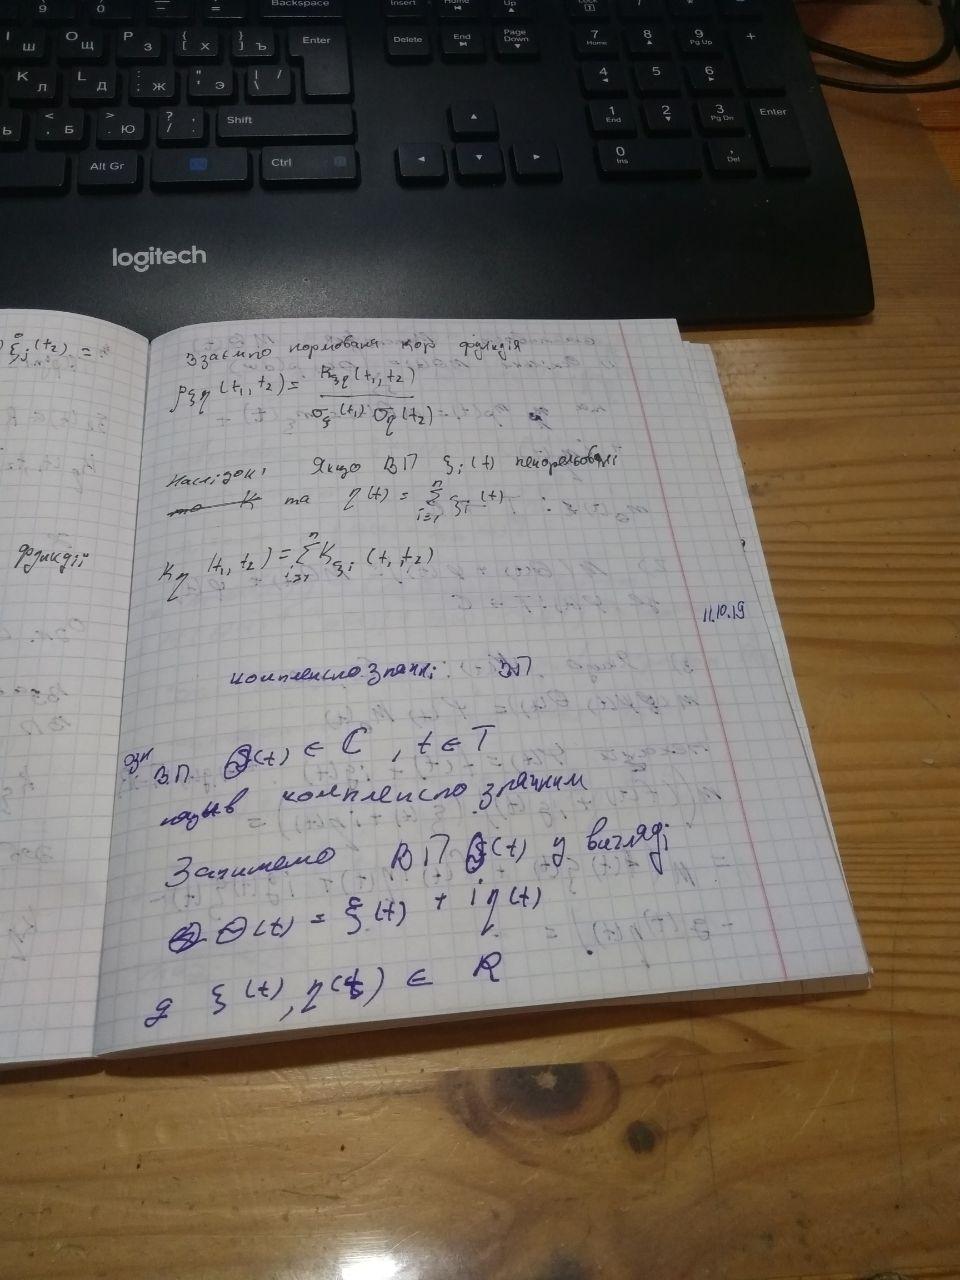 9
0
-
–
+
=
Backspace
Insert
Home
Page
Up
Lock
1
7
Home
8
9
Pg Up
+
I
Ш
O
Щ
P
З
{
[
Х
}
]
Ъ
Enter
Delete
End
Page
Down
K
Л
L
Д
:
;
Ж
"
'
Э
|
\
/
4
5
6
Ь
<
,
Б
>
.
Ю
?
/
Shift
1
End
2
3
Pg Dn
Enter
Alt Gr
Ctrl
0
Ins
Del
logitech
ξ̊ⱼ(t₂) =
функції
Взаємно нормована кор функція
ρξη(t₁, t₂) = Kξη(t₁, t₂) / σξ(t₁) ση(t₂)
Наслідок: Якщо ВП ξᵢ(t) некорельовані
та η(t) = Σⁿᵢ₌₁ ξᵢ(t)
Kη(t₁, t₂) = Σⁿᵢ₌₁ Kξᵢ(t₁, t₂)
11.10.19
комплексно значні ВП
Озн
В.П. θ(t) ∈ ℂ, t ∈ T
назив комплексно значним
Запишемо ВП θ(t) у вигляді
θ(t) = ξ(t) + iη(t)
д ξ(t), η(t) ∈ R